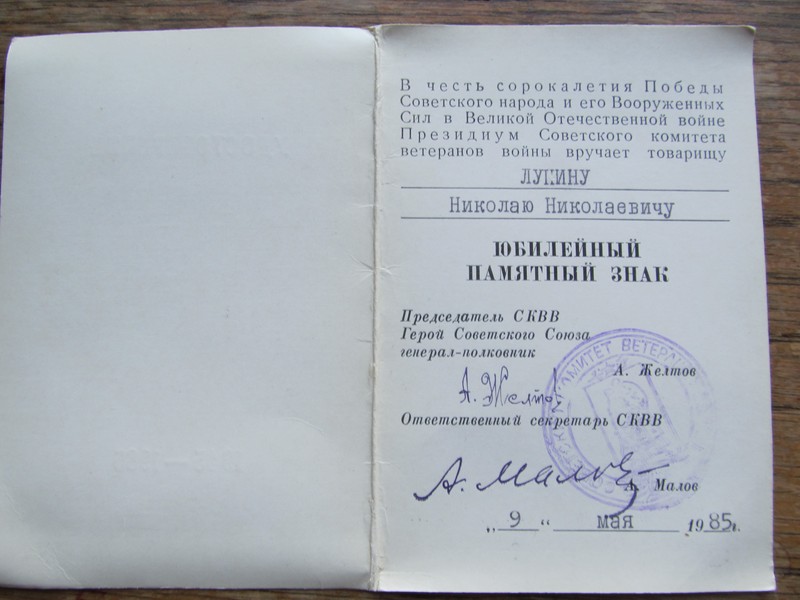 В честь сорокалетия Победы
Советского народа и его Вооруженных
Сил в Великой Отечественной войне
Президиум Советского комитета
ветеранов войны вручает товарищу
ЛУКИНУ
Николаю Николаевичу
ЮБИЛЕЙНЫЙ
ПАМЯТНЫЙ ЗНАК
Председатель СКВВ
Герой Советского Союза
генерал-полковник
А. Желтов
А. Желтов
Ответственный секретарь СКВВ
А. Малов
А. Малов
КОМИТЕТ ВЕТЕРА
„ 9 “ мая 1985г.